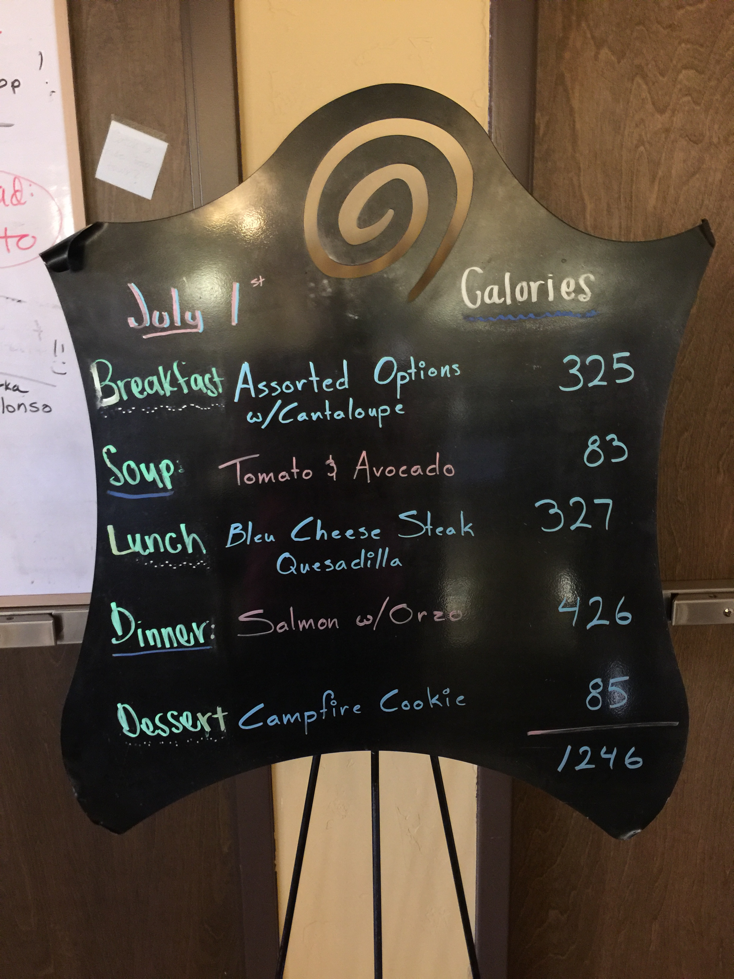 July 1st
Calories
Breakfast Assorted Options 325
w/Cantaloupe
Soup: Tomato & Avocado 83
Lunch Bleu Cheese Steak 327
Quesadilla
Dinner: Salmon w/Orzo 426
Dessert Campfire Cookie 85
1246
to
!!
lonso